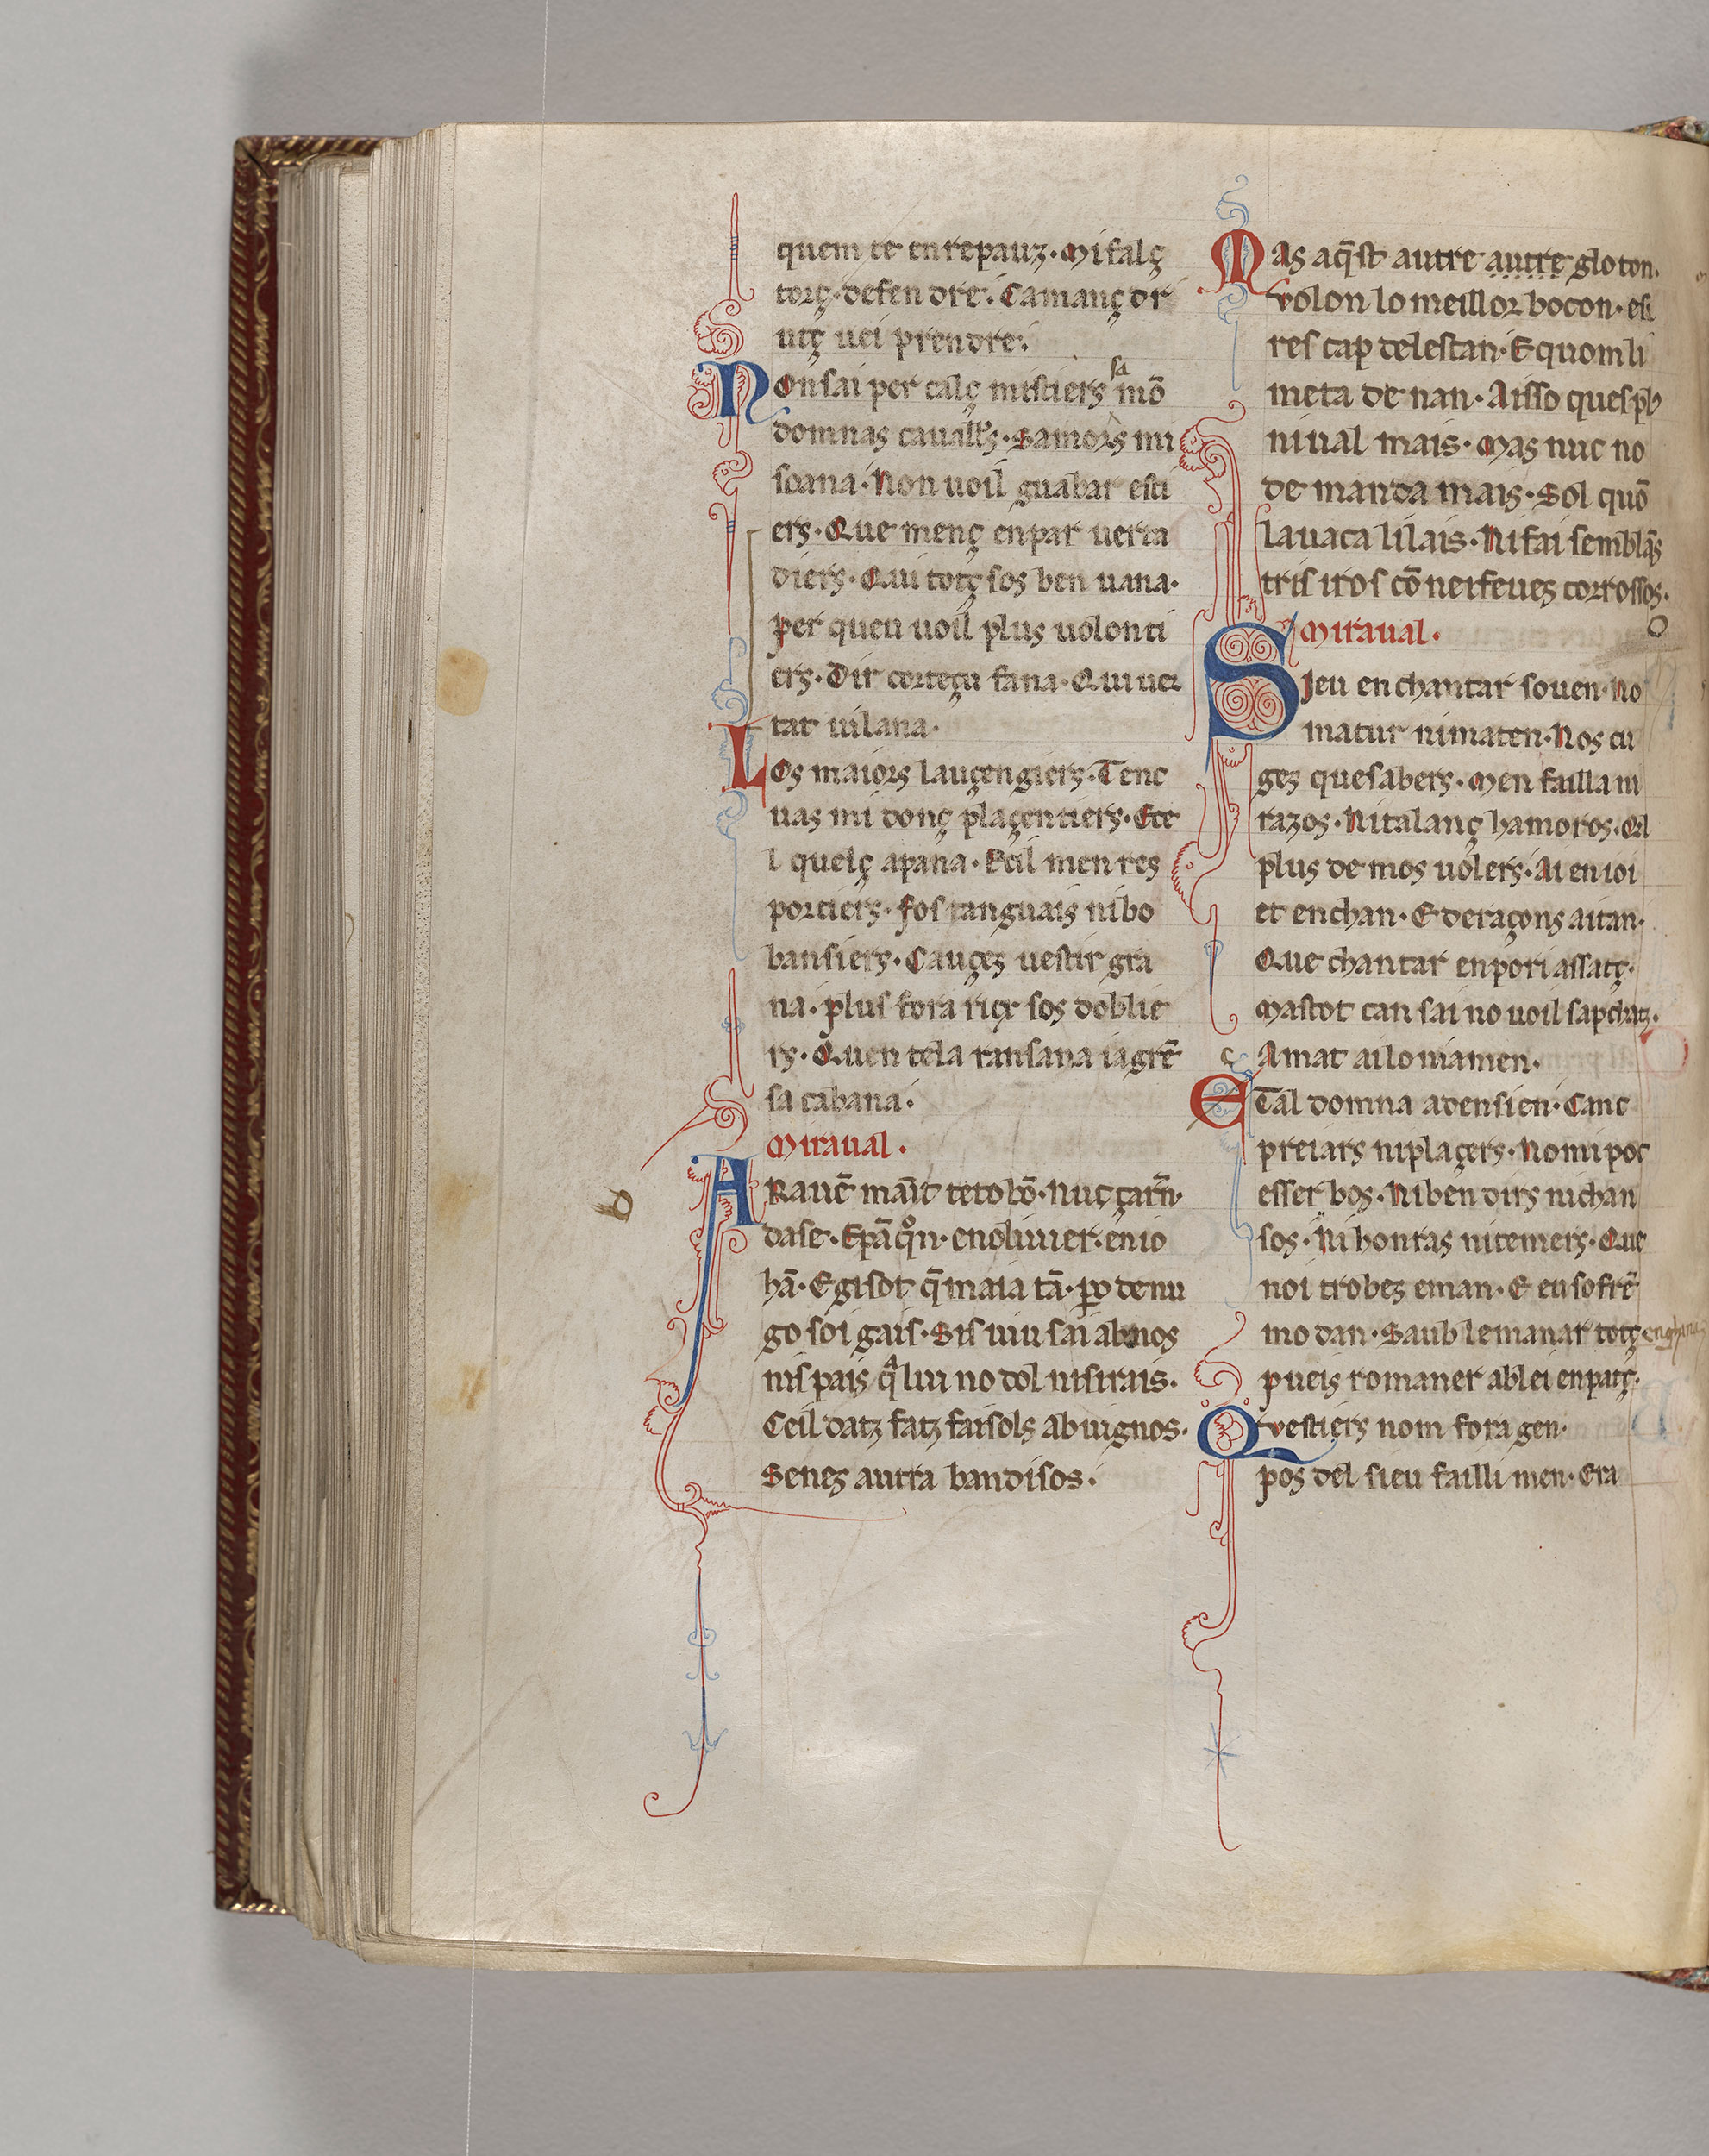 quem te en repauz. Mi falç
torç. defen dre. Camanç dr
utç uei prendre.
Non sai per calç mistiers sa mō
domnas cauallrs. Samors mi
soana. Non uoil guabar esti
ers. Que menç en par uerta
diers. Qui totç sos ben uana.
per queu uoil plus uolonti
ers. Dir corteçu fana. Qui uer
tat uilana.
Los maiors lauçengiers. Tenc
uas mi donç plaçentiers. Ete
l quelç apana. Ecil men res
portiers. fos tanguais nibo
bansiers. Cauçes uestir gra
na. plus fora riçx sos doblie
rs. Quen tela ransana iagrē
sa cabana.
Miraual.
A Rauē māit teto bō. Nuç çarñ.
dase. Epāqºn. enoliuier. enio
hā. Egisot q̄ maia tā. ꝑo denu
go soi gais. Sis uiu sai abnos
nis pais qᵃ lui no dol nisirais.
Ceil datz fatz faisols abuignos.
Senes autra bandisos.
Mas aq̄st autre autre gloton.
volon lo meillor bocon. esi
res cap delestan. E quom li
meta denan. Aisso quesplb
niual mais. Mas nuc no
de manda mais. Sol quō
la uaca lilais. Ni fai semblās
tris iros cō neifeues corrossos.
Miraual.
Sieu en chantar souen. No
matur nimaten. Nos cu
ges que sabers. Men failla ni
razos. Ni talanç hamoros. Qel
plus de mos uolers. Ai en ioi
et enchan. E deraçons aitan.
Que chantar en pori assatç.
Mastot can sai no uoil sapchatz.
c Amat ailoniamen.
E Tal domna adensien. Canc
preiars niplaçers. No mi poc
esser bos. Ni ben dirs nichan
sos. Ni hontas nitemers. Que
noi trobes eman. E eu sofrē
mo dan. Saub lemanar totç enghinz
pueis romaner ablei en patç.
Questiers nom fora gen.
pos del sieu failli men. Era